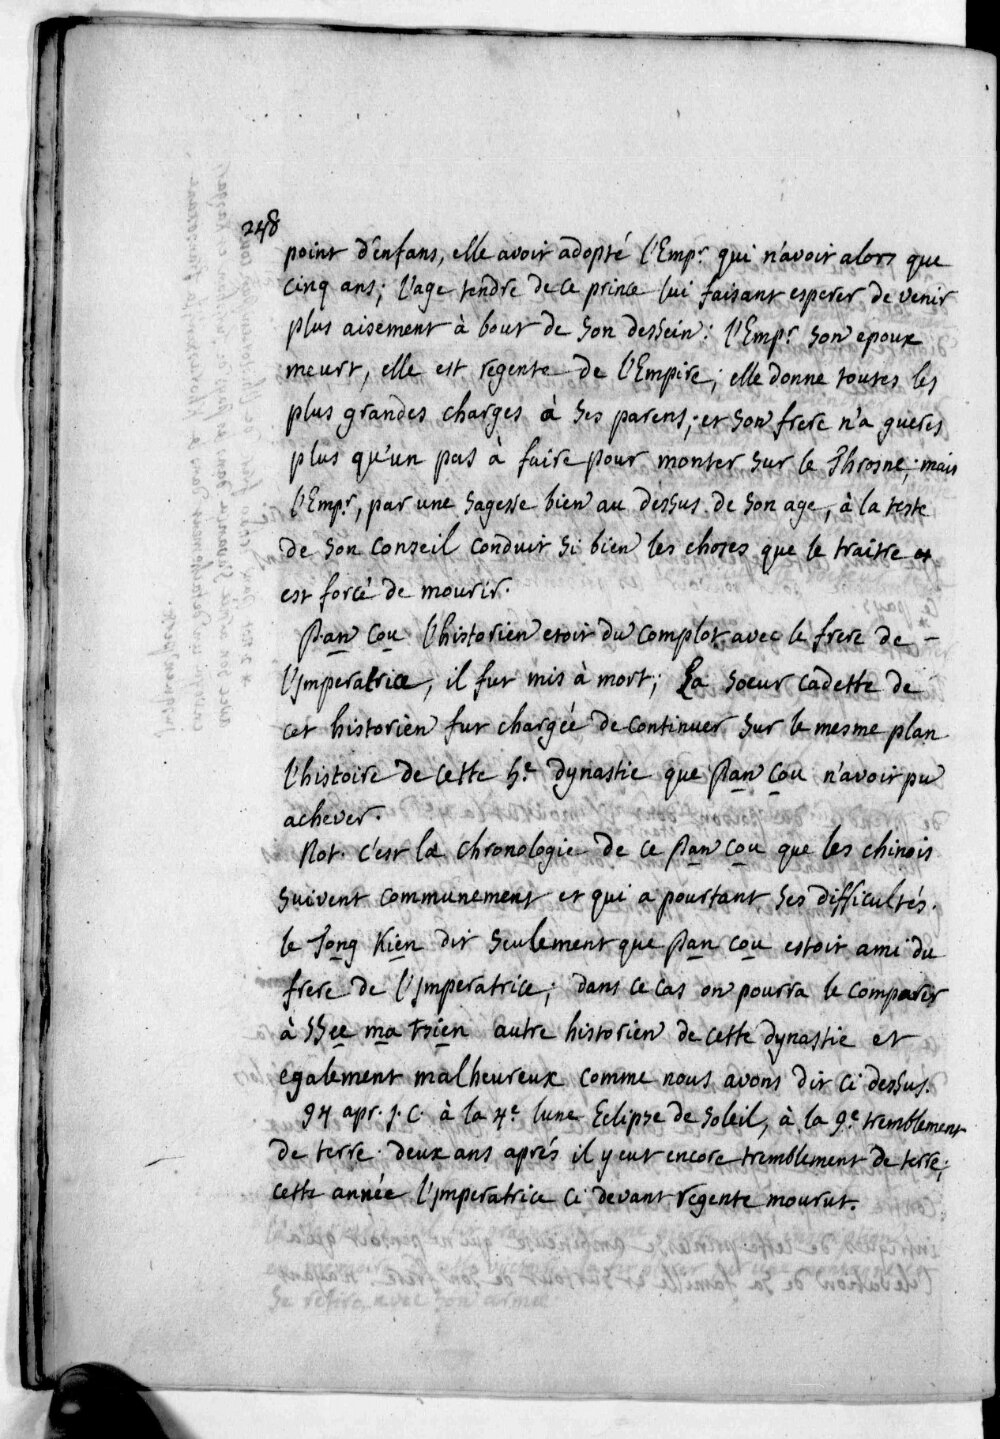 248
point d'enfans, elle avoit adopté l'Emp.r qui n'avoit alors que
cinq ans; l'age tendre de ce prince lui faisant esperer de venir
plus aisement à bout de son dessein: l'Emp.r son epoux
meurt, elle est regente de l'Empire; elle donne toutes les
plus grandes charges à ses parens; et son frere n'a gueres
plus qu'un pas à faire pour monter sur le Throsne; mais
l'Emp.r, par une sagesse bien au dessus de son age, à la teste
de son conseil conduit si bien les choses que le traitre
est forcé de mourir.
Pan Cou l'historien etoit du complot avec le frere de
l'Imperatrice, il fut mis à mort; La soeur cadette de
cet historien fut chargée de continuer sur le mesme plan
l'histoire de cette 5.e dynastie que Pan Cou n'avoit pu
achever.
Not. c'est la chronologie de ce Pan Cou que les chinois
suivent communement et qui a pourtant ses difficultés.
le Tong Kien dit seulement que Pan Cou estoit ami du
frere de l'Imperatrice; dans ce cas on pourra le comparer
à ssee ma tsien autre historien de cette dynastie et
egalement malheureux comme nous avons dit ci dessus.
94 apr. j. c. à la 4.e lune Eclipse de soleil, à la 9.e tremblement
de terre. deux ans aprés il y eut encore tremblement de terre;
cette année l'imperatrice ci devant regente mourut.